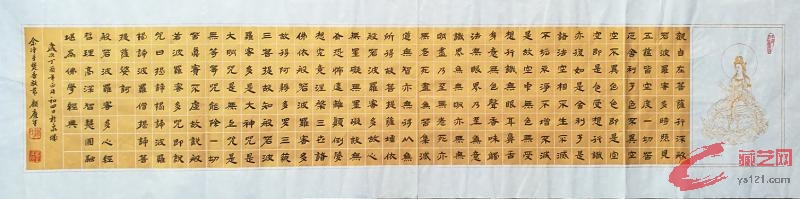 觀自在菩薩行深般
若波羅蜜多時照見
五蘊皆空度一切苦
厄舍利子色不異空
空不異色色即是空
空即是色受想行識
亦復如是舍利子是
諸法空相不生不滅
不垢不淨不增不減
是故空中無色無受
想行識無眼耳鼻舌
身意無色聲香味觸
法無眼界乃至無意
識界無無明亦無無
明盡乃至無老死亦
無老死盡無苦集滅
道無智亦無得以無
所得故菩提薩埵依
般若波羅蜜多故心
無罣礙無罣礙故無
有恐怖遠離顛倒夢
想究竟涅槃三世諸
佛依般若波羅蜜多
故得阿耨多羅三藐
三菩提故知般若波
羅蜜多是大神咒是
大明咒是無上咒是
無等等咒能除一切
苦真實不虛故說般
若波羅蜜多咒即說
咒曰揭諦揭諦波羅
揭諦波羅僧揭諦菩
提薩婆訶
般若波羅蜜多心經
哲理高深智慧圓融
堪為佛學經典
歲次丁酉年正月初四日於京
余淨手焚香敬書
藏艺网
ys121.com